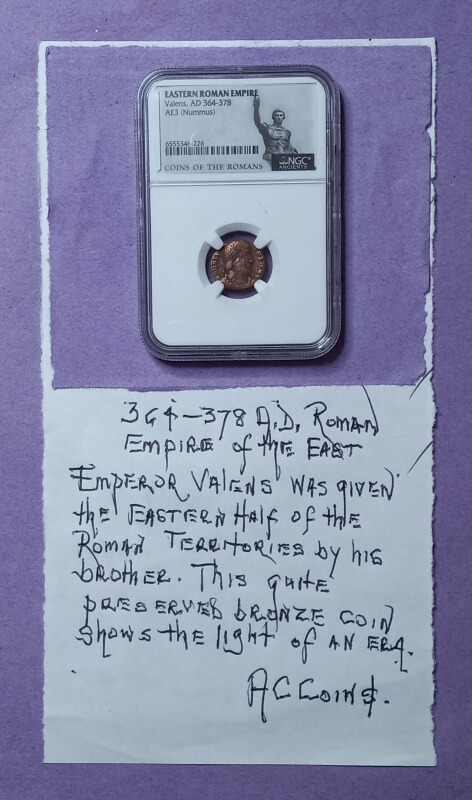 EASTERN ROMAN EMPIRE
Valens, AD 364-378
AE3 (Nummus)
6555346-226
COINS OF THE ROMANS
NGC
ANCIENTS
364-378 A.D. ROMAN
EMPIRE of the EAST
EMPEROR VALENS WAS GIVEN
the EASTERN Half of the
ROMAN TERRITORIES by his
brother. This quite
preserved bronze coin
shows the light of AN ERA.
AC COIN$.